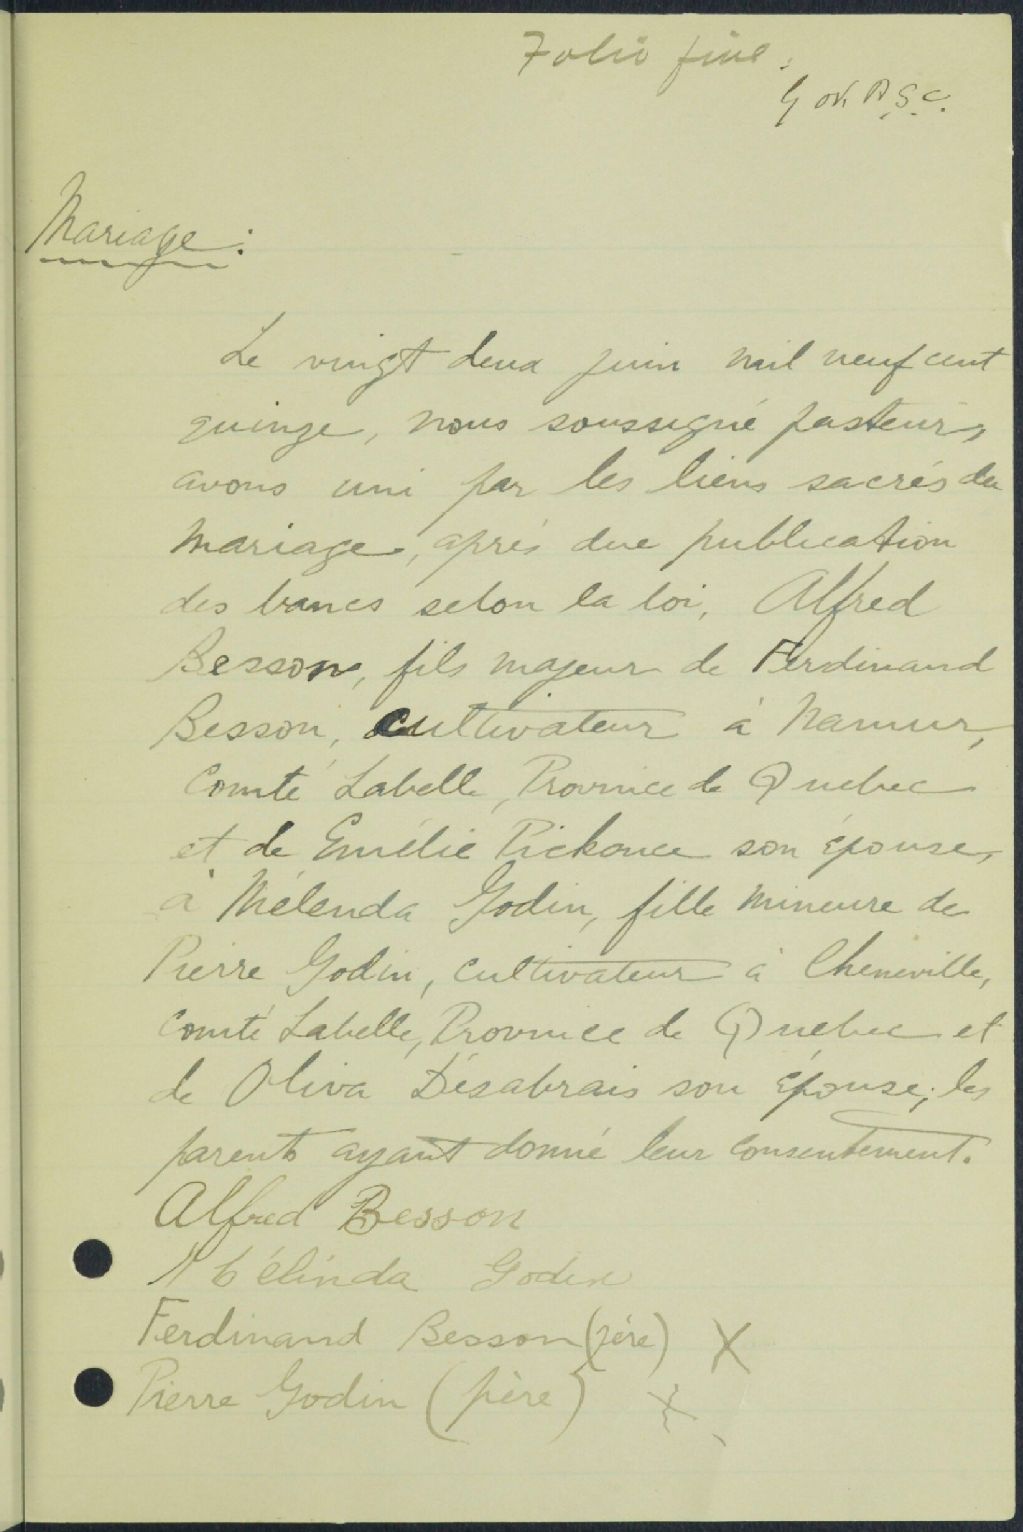 Folio five.
Mariage:
Le vingt deux juin mil neuf cent
quinze, nous soussigné pasteur,
avons uni par les liens sacrés du
mariage, après due publication
des bancs selon la loi, Alfred
Besson, fils majeur de Ferdinand
Besson, cultivateur à Namur,
Comté Labelle, Province de Quebec
et de Emélie Pickonce son épouse,
à Mélenda Godin, fille mineure de
Pierre Godin, cultivateur à Cheneville,
Comté Labelle, Province de Quebec et
de Oliva Désabrais son épouse; les
parents ayant donné leur consentement.
Alfred Besson
Mélinda Godin
Ferdinand Besson (père) X
Pierre Godin (père) X